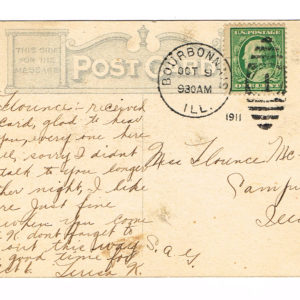 THIS SIDE
FOR THE
MESSAGE
POST CARD
BOURBONNAIS
OCT 9
930AM
ILL.
1911
U.S. POSTAGE
Florence - received
card, glad to hear
you, every one here
, sorry I didn't
talk to you longer
other night, I like
here Just fine
when you come
K don't forget to
out this way
a good time for
Teresa K.
Miss Florence Mc
Camp
S. A. G.